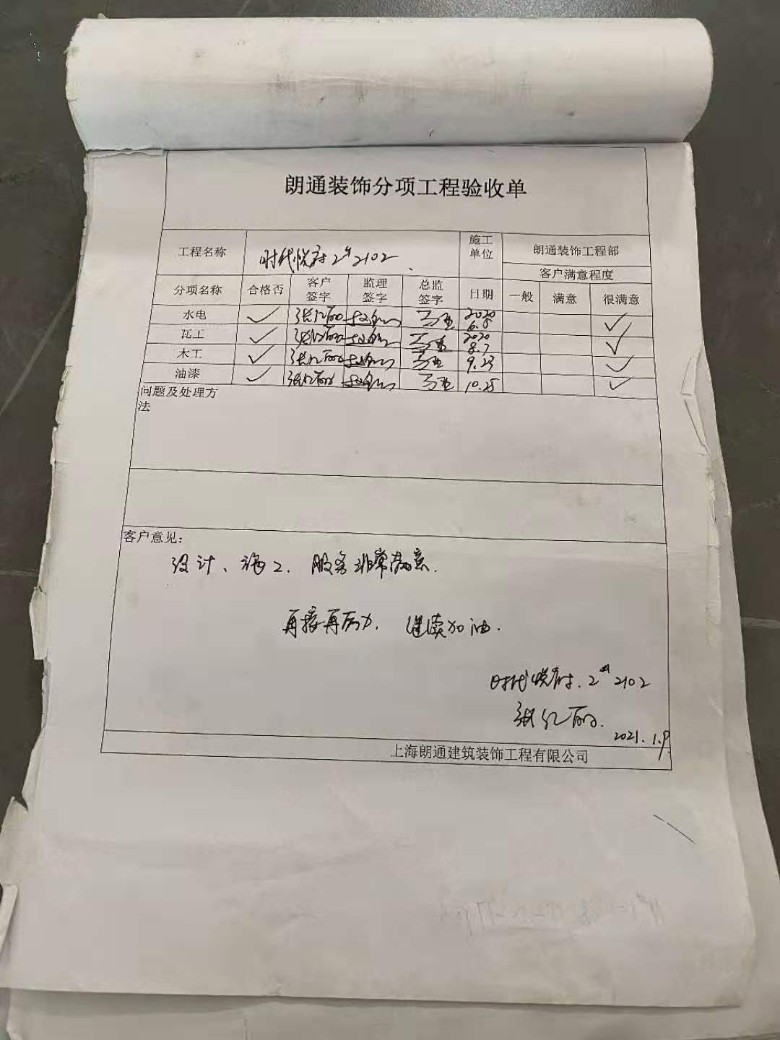 朗通装饰分项工程验收单
工程名称 时代悦府2# 2102 施工单位 朗通装饰工程部
客户满意程度
分项名称 合格否 客户签字 监理签字 总监签字 日期 一般 满意 很满意
水电 ✓ 2020 6.8 ✓
瓦工 ✓ 2020 8.7 ✓
木工 ✓ 9.23 ✓
油漆 ✓ 10.28 ✓
问题及处理方法
客户意见:
设计、施工、服务非常满意.
再接再厉, 继续加油.
时代悦府. 2# 2102
2021.1.9
上海朗通建筑装饰工程有限公司